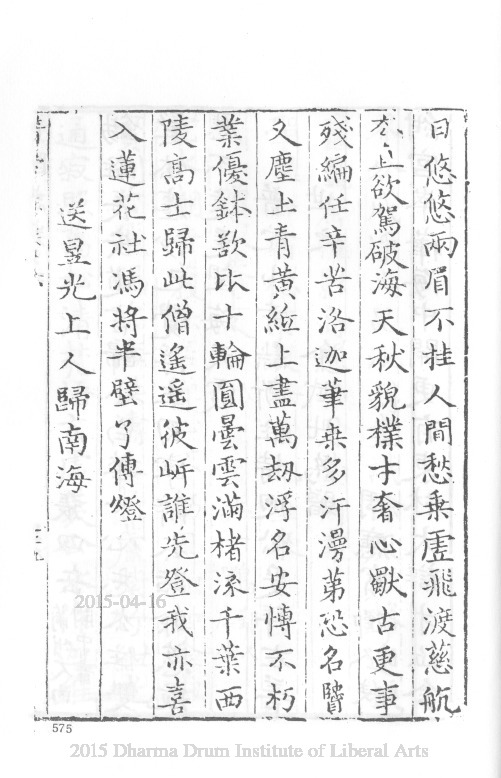 日悠悠兩眉不挂人間愁乘虛飛渡慈航
上欲駕破海天秋貌樸才奢心獸古更事
殘編任辛苦洛迦葦乘多汗漫第恐名賢
久塵土青黃絵上盡萬劫浮名安慱不朽
業優鉢欲比十輪圓曇雲滿楮流千葉西
陵高士歸此僧遙遥彼岍誰先登我亦喜
入蓮花社馮將半壁了傳燈
送昱光上人歸南海
2015-04-16
575
2015 Dharma Drum Institute of Liberal Arts